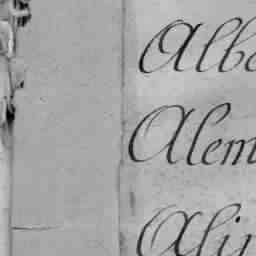 Alba
Alem
Alij